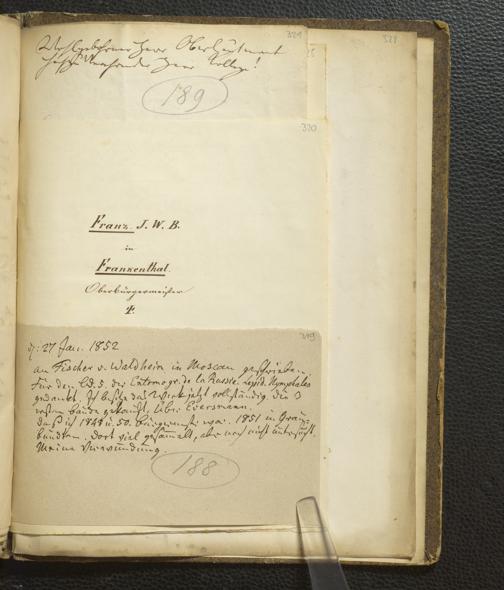 324
Wohlgebohrner Herr Oberlieutenant
Herr College!
189
329
320
Franz J. W. B.
in
Frankenthal.
Oberbürgermeister
4.
319
27 Jan. 1852
an Fischer v. Waldheim in Moscau geschrieben.
Für den Bd. 5. der Entomogr. de la Russie. Lepid. Nymphales
gedankt. Ich besitze das Werk jetzt vollständig, die 3
ersten Bände gekauft. Über Eversmann.
daß ich 1849 u. 50. 1851 in Grau-
bündten. Dort viel gesammelt, aber noch nicht untersucht.
Meine Verwundung.
188